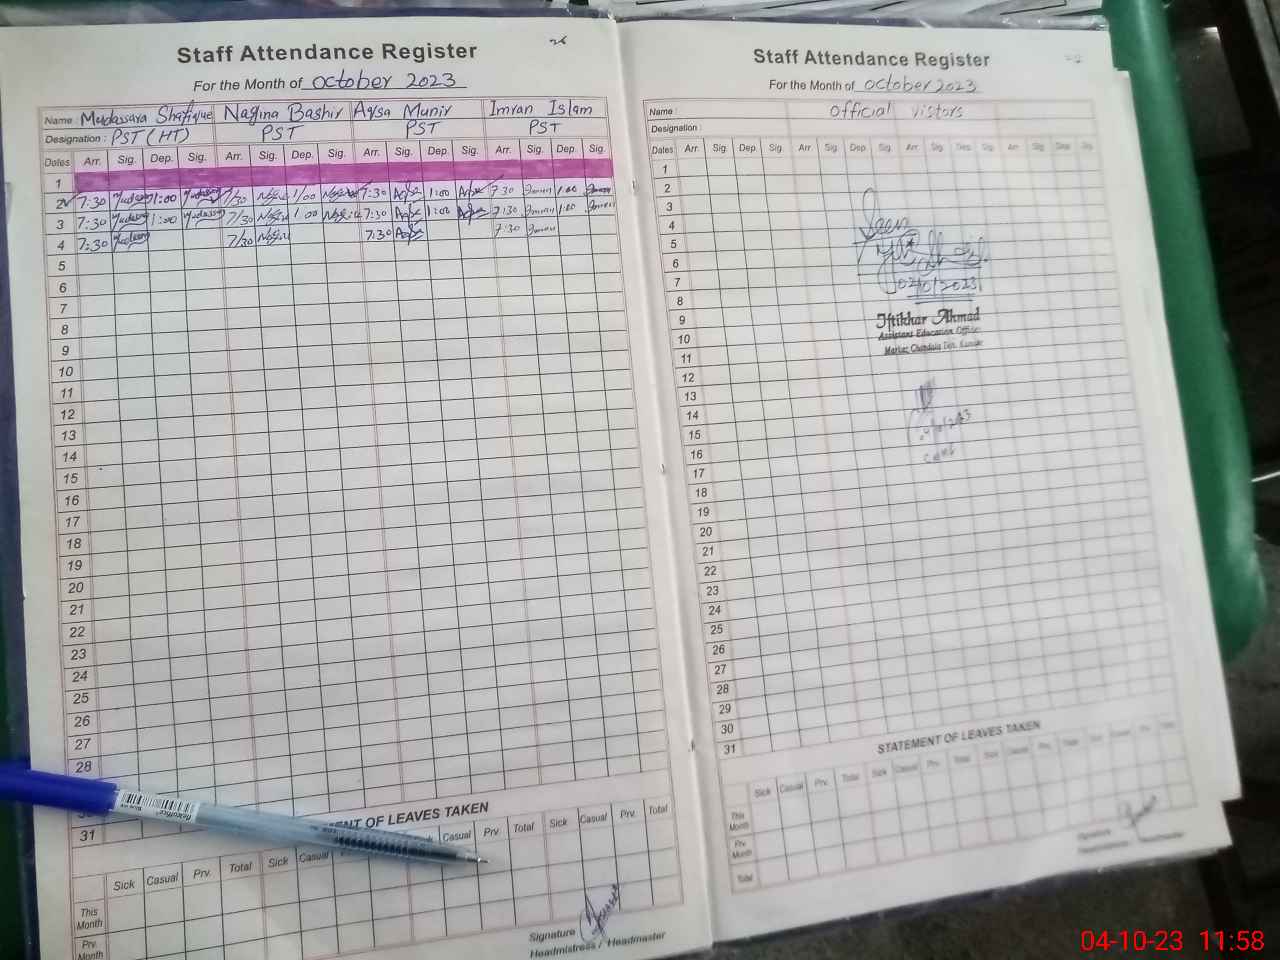 Staff Attendance Register
For the Month of October 2023
Name : Mudassara Shafique Nagina Bashir Aqsa Munir Imran Islam
Designation : PST (HT) PST PST PST
Dates Arr. Sig. Dep. Sig. Arr. Sig. Dep. Sig. Arr. Sig. Dep. Sig. Arr. Sig. Dep. Sig.
1
2 7:30 1:00 7/30 1/00 7:30 Aqsa 1:00 Aqsa 7:30 Imran 1:00 Imran
3 7:30 1:00 7/30 1:00 7:30 Aqsa 1:00 Aqsa 7:30 Imran 1:00 Imran
4 7:30 7/30 7:30 Aqsa 7:30 Imran
5
6
7
8
9
10
11
12
13
14
15
16
17
18
19
20
21
22
23
24
25
26
27
28
31
OF LEAVES TAKEN
Sick Casual Prv. Total Sick Casual Casual Prv. Total Sick Casual Prv. Total
This Month
Prv. Month
Signature
Headmistress / Headmaster
Staff Attendance Register
For the Month of October 2023
Name : Official vistors
Designation :
Dates Arr. Sig. Dep. Sig. Arr. Sig. Dep. Sig. Arr. Sig. Dep. Sig. Arr. Sig. Dep. Sig.
1
2
3
4
5
6
7
8
9
10
11
12
13
14
15
16
17
18
19
20
21
22
23
24
25
26
27
28
29
30
31
Seen
Iftikhar Ahmad
Assistant Education Officer
STATEMENT OF LEAVES TAKEN
Sick Casual Prv. Total Sick Casual Prv. Total Sick Casual Prv. Total Sick Casual Prv. Total
This Month
Prv. Month
Total
Signature
04-10-23 11:58